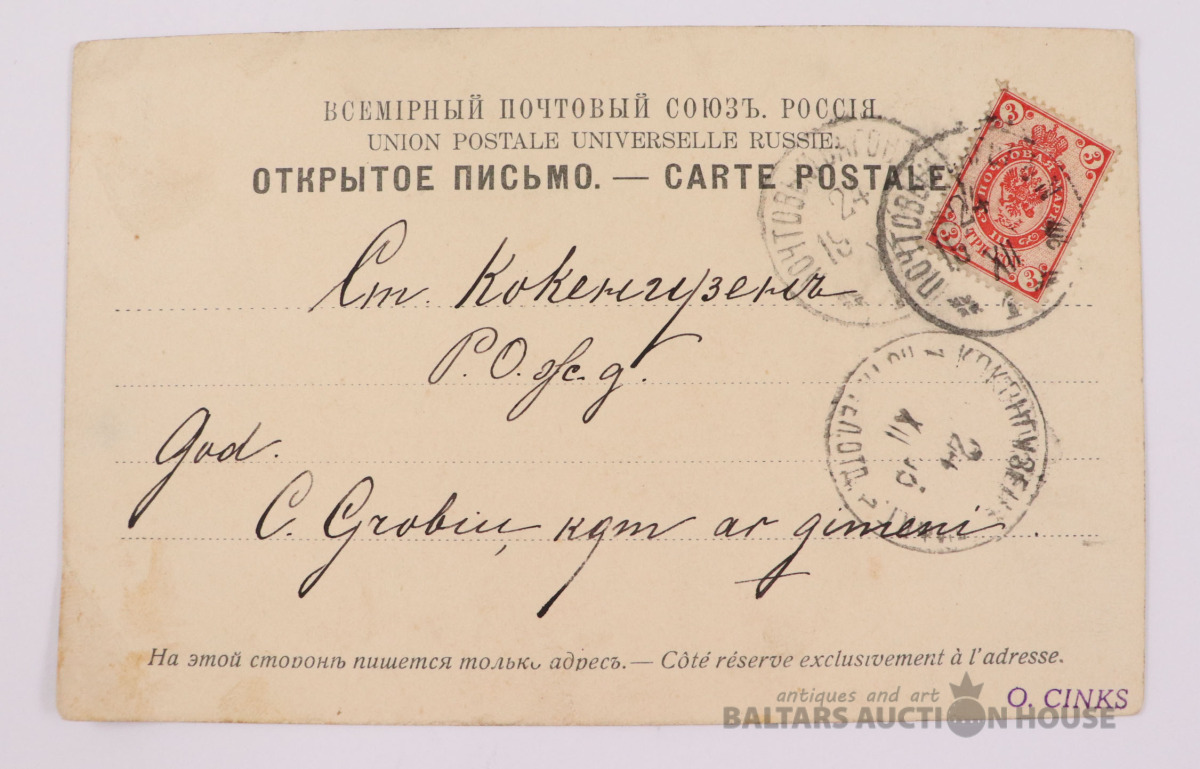 ВСЕМІРНЫЙ ПОЧТОВЫЙ СОЮЗЪ. РОССІЯ.
UNION POSTALE UNIVERSELLE RUSSIE.
ОТКРЫТОЕ ПИСЬМО. — CARTE POSTALE
3
3
3
3
ПОЧТОВАЯ МАРКА
ПОЧТОВ
24
ПОЧТОВ
24
XII
Ст. Кокенгузенъ
Р. О. ж. д.
God.
C. Grobiņ, kgm ar ģimeni.
КОКЕНГУЗЕН
24
XII
На этой сторонѣ пишется только адресъ. — Côté réserve exclusivement à l'adresse.
O. CINKS
antiques and art
BALTARS AUCTION HOUSE